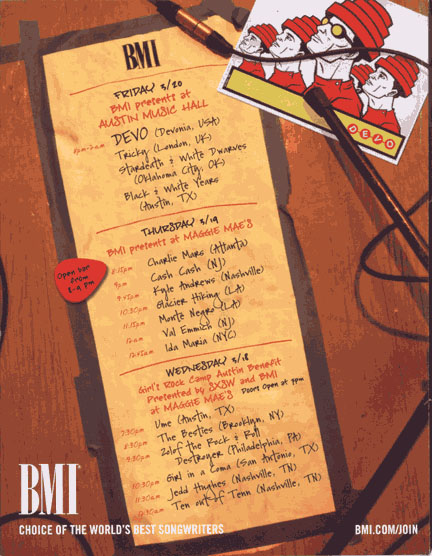 BMI
FRIDAY 3/20
BMI presents at
AUSTIN MUSIC HALL
DEVO (Devonia, USA)
Tricky (London, UK)
Stardeath & White Dwarves
(Oklahoma City, OK)
Black & White Years
(Austin, TX)
DEVO
THURSDAY 3/19
BMI presents at MAGGIE MAE'S
8:15pm Charlie Mars (Atlanta)
9pm Cash Cash (NJ)
9:45pm Kyle Andrews (Nashville)
10:30pm Glacier Hiking (LA)
11:15pm Monte Negro (LA)
12am Val Emmich (NJ)
12:45am Ida Maria (NYC)
Open bar
from
8-9 pm
WEDNESDAY 3/18
Girl's Rock Camp Austin Benefit
Presented by SXSW and BMI
at MAGGIE MAE'S Doors Open at 7pm
7:30pm Ume (Austin, TX)
8:30pm The Besties (Brooklyn, NY)
9:30pm Zolof the Rock & Roll
Destroyer (Philadelphia, PA)
10:30pm Girl in a Coma (San Antonio, TX)
11:30pm Jedd Hughes (Nashville, TN)
12:30am Ten out of Tenn (Nashville, TN)
BMI
CHOICE OF THE WORLD'S BEST SONGWRITERS
BMI.COM/JOIN